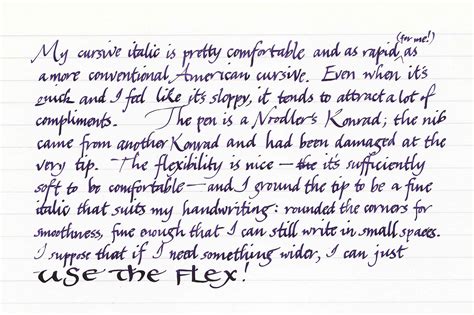 (for me!)
My cursive italic is pretty comfortable and as rapid, as
a more conventional American cursive. Even when it's
quick and I feel like it's sloppy, it tends to attract a lot of
compliments. The pen is a Noodler's Konrad; the nib
came from another Konrad and had been damaged at the
very tip. The flexibility is nice — the it's sufficiently
soft to be comfortable — and I ground the tip to be a fine
italic that suits my handwriting: rounded the corners for
smoothness, fine enough that I can still write in small spaces.
I suppose that if I need something wider, I can just
USE THE FLEX!